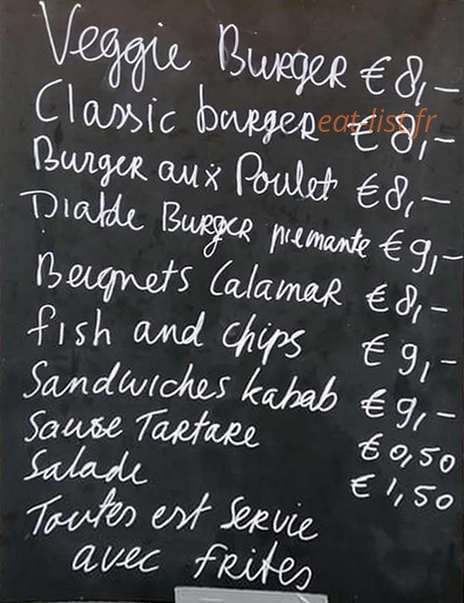 Veggie Burger € 8,-
Classic burger € 8,-
eat-list.fr
Burger aux Poulet € 8,-
Diable Burger piemante € 9,-
Beignets Calamar € 8,-
fish and chips € 9,-
Sandwiches kabab € 9,-
Sause Tartare € 0,50
Salade € 1,50
Toutes est servie
avec frites